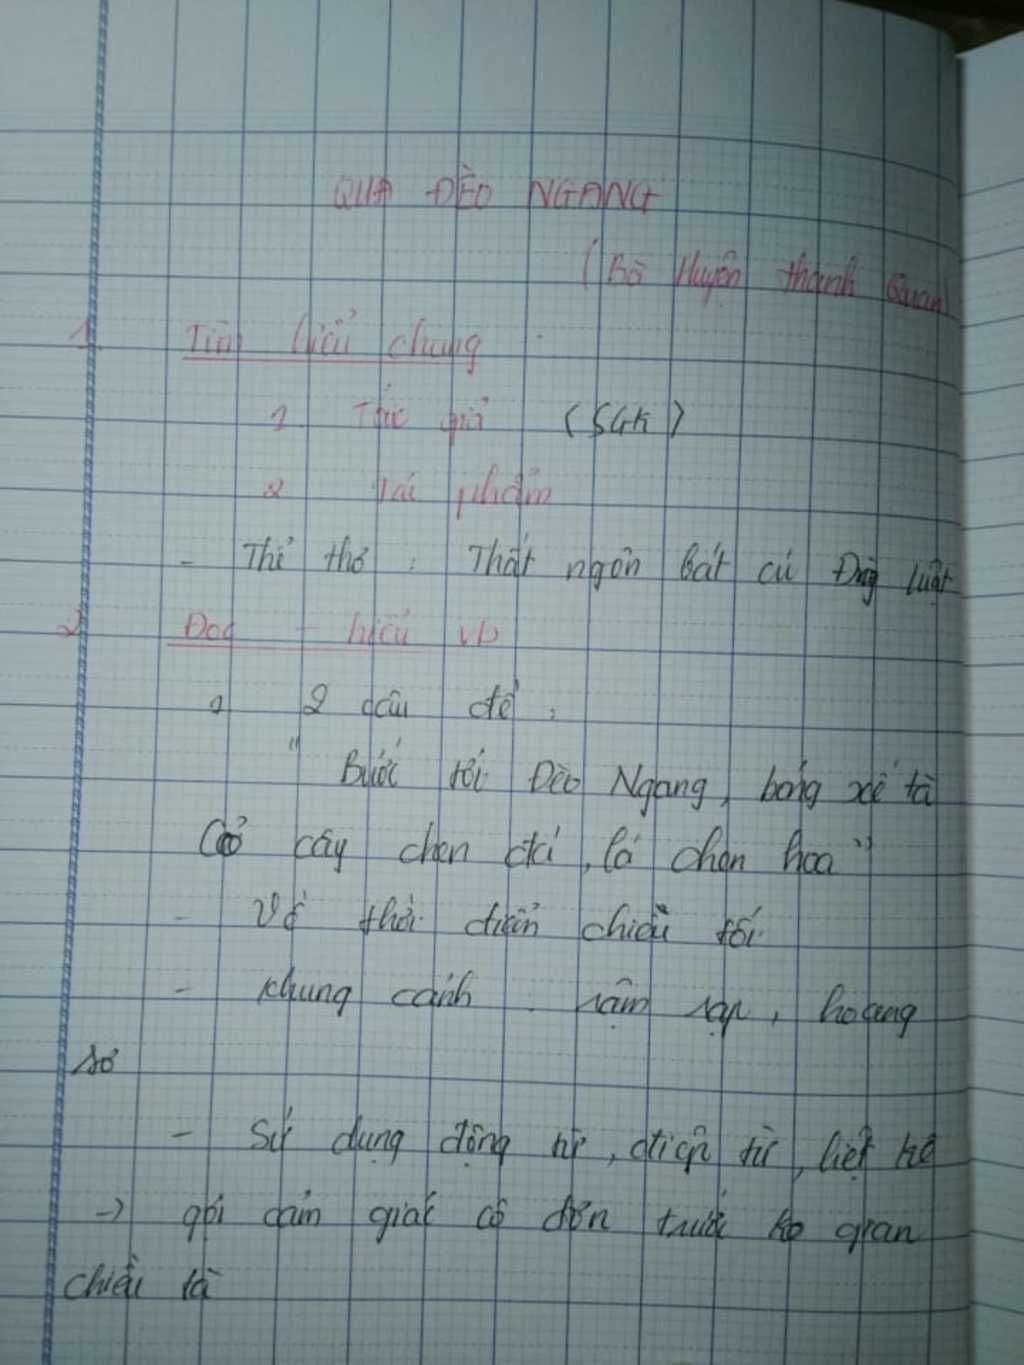 QUA ĐÈO NGANG
(Bà Huyện Thanh Quan)
1. Tìm hiểu chung
1. Tác giả (SGK)
2 Tác phẩm
- Thể thơ : Thất ngôn bát cú Đường luật
2. Đọc - hiểu vb
1 2 câu đề :
" Bước tới Đèo Ngang, bóng xế tà
Cỏ cây chen đá, lá chen hoa"
- Về thời điểm chiều tối
- Khung cảnh rậm rạp, hoang
sơ
- Sử dụng động từ, điệp từ, liệt kê
-> gợi cảm giác cô đơn trước ko gian
chiều tà